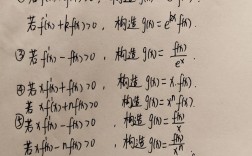 若f'(x)+kf(x)>0, 构造 g(x)=e^{kx}f(x).
③若f'(x)-f(x)>0, 构造 g(x)=\frac{f(x)}{e^x}
④若xf'(x)+f(x)>0, 构造 g(x)=x·f(x).
若xf'(x)+nf(x)>0, 构造 g(x)=x^n f(x).
⑤若xf'(x)-f(x)>0, 构造 g(x)=\frac{f(x)}{x}
若xf'(x)-nf(x)>0, 构造 g(x)=\frac{f(x)}{x^n}